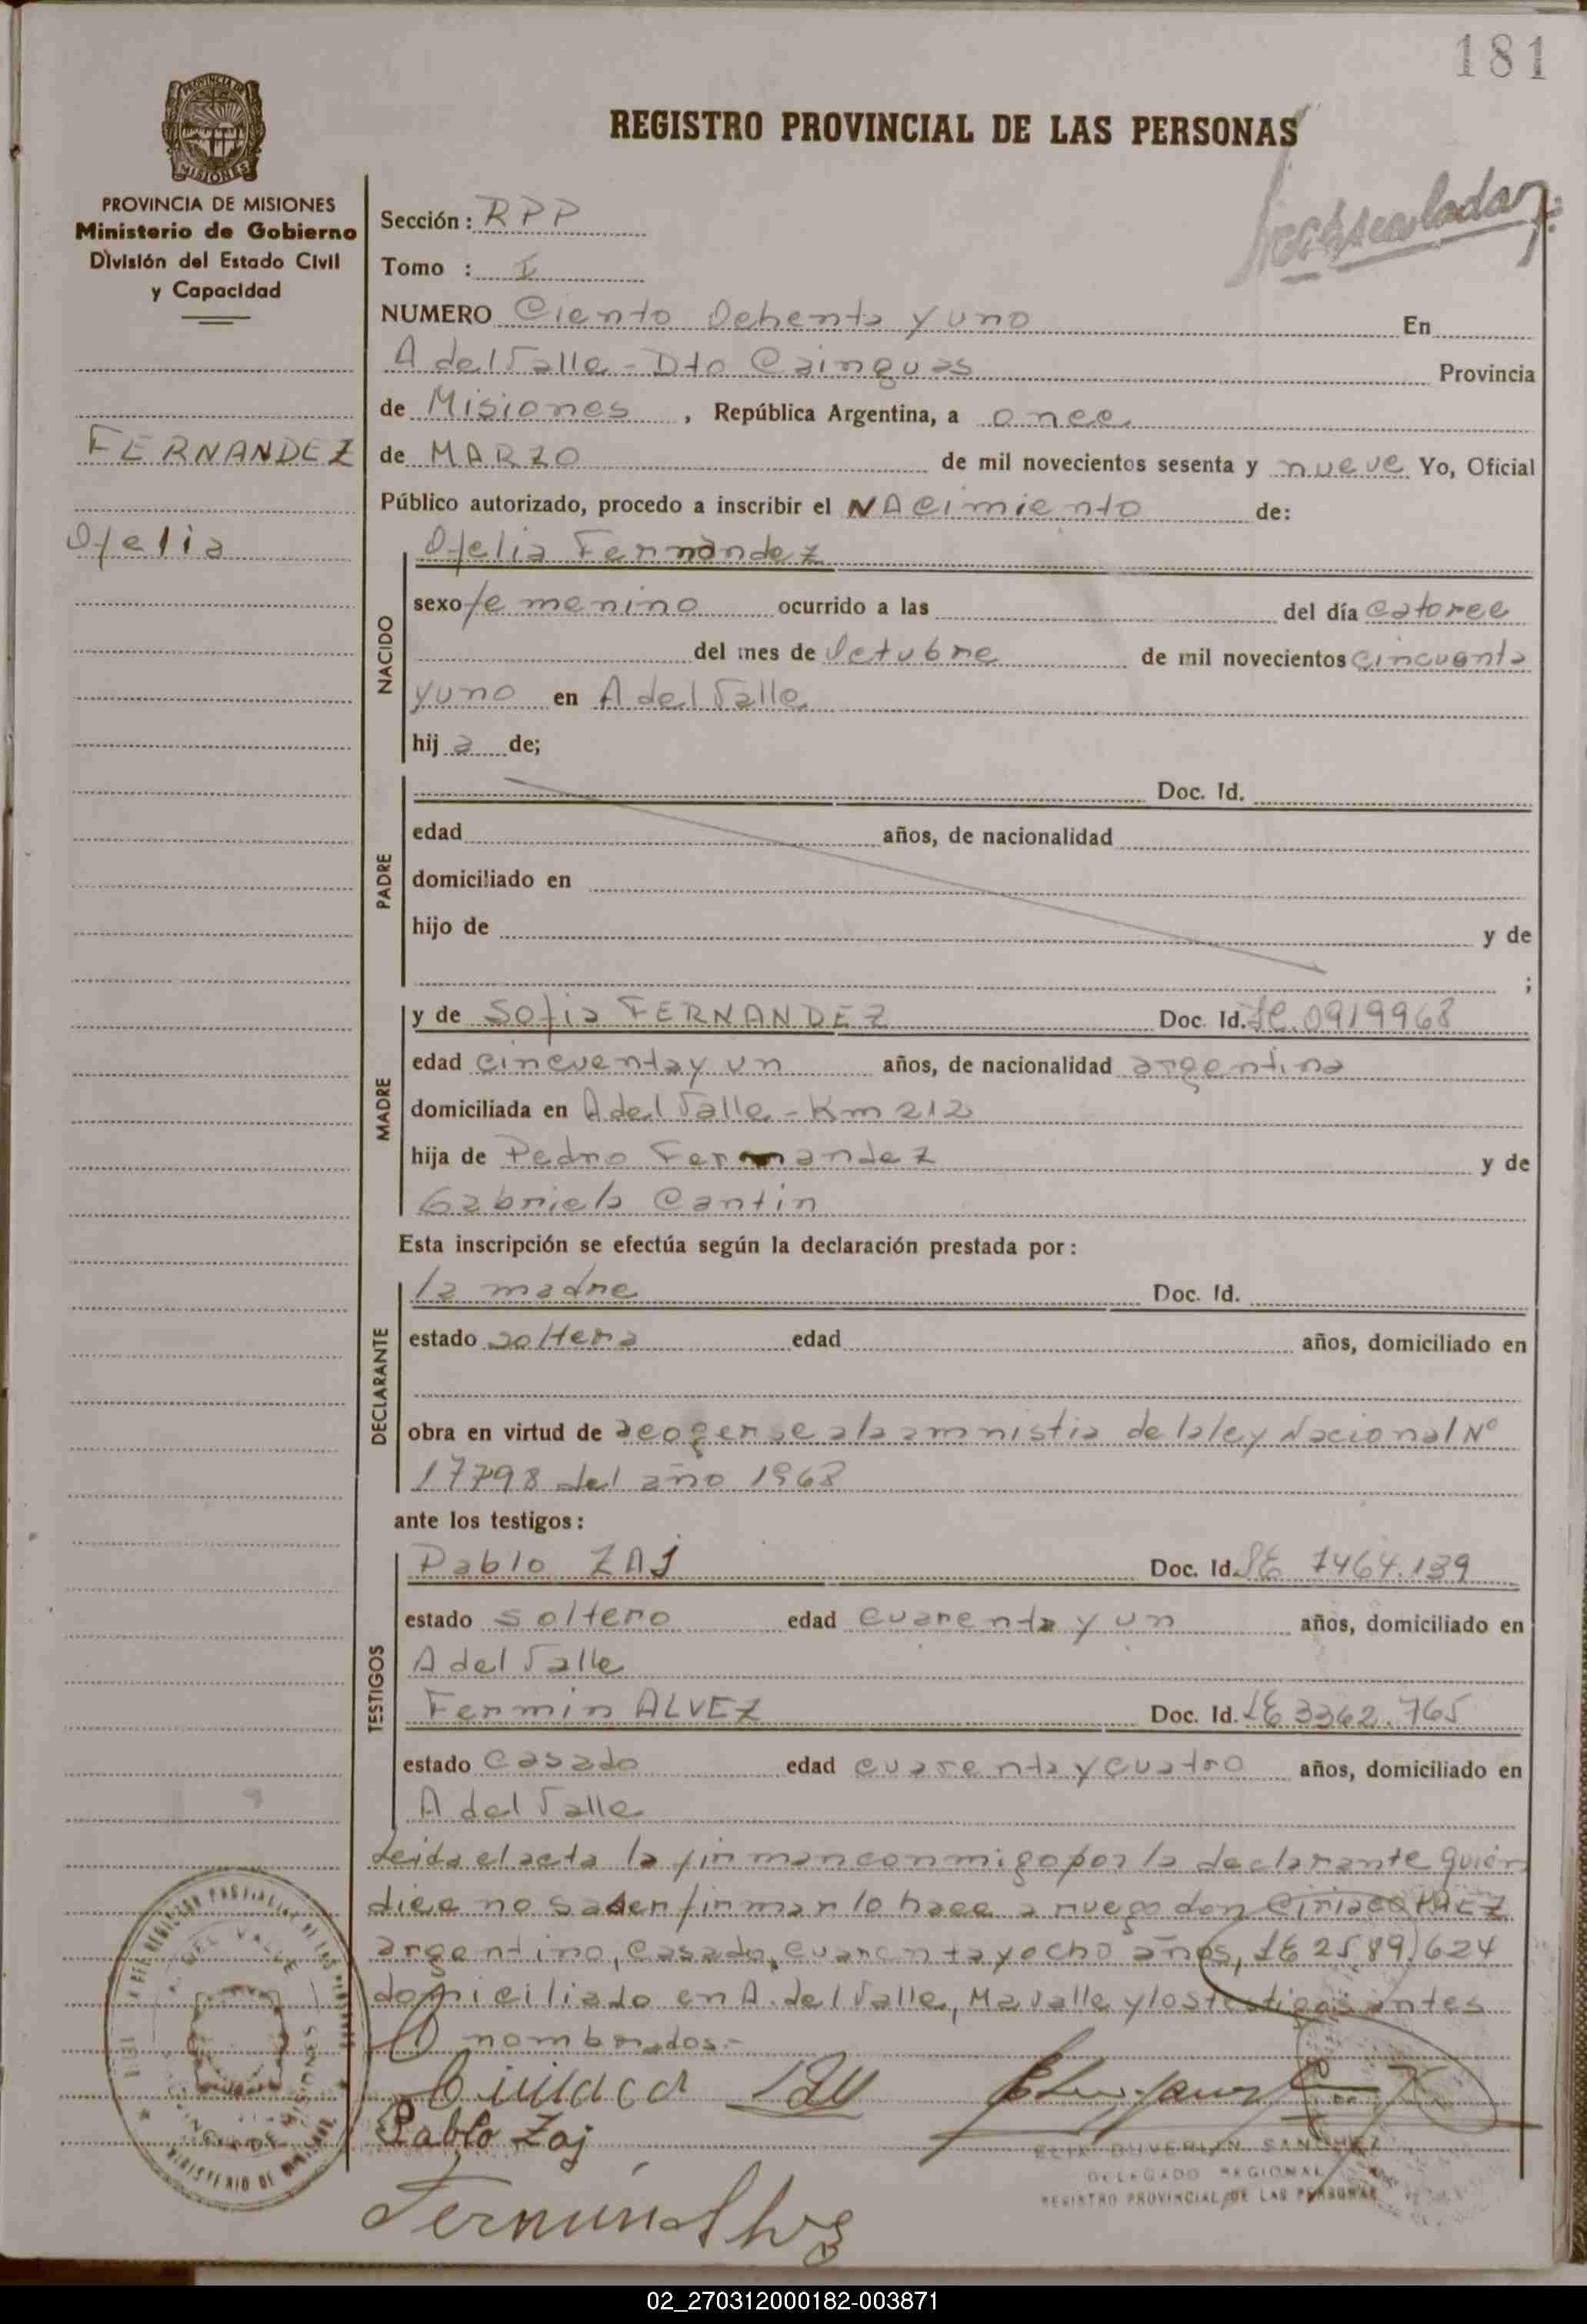 181
REGISTRO PROVINCIAL DE LAS PERSONAS
PROVINCIA DE MISIONES
Ministerio de Gobierno
División del Estado Civil
y Capacidad
FERNANDEZ
Ofelia
Sección: RPP
Tomo : I
NUMERO Ciento Ochenta y uno En
A del Valle - Dto Cainguas Provincia
de Misiones, República Argentina, a once
de MARZO de mil novecientos sesenta y nueve Yo, Oficial
Público autorizado, procedo a inscribir el NAcimiento de:
NACIDO
Ofelia Fernandez
sexo femenino ocurrido a las del día catorce
del mes de Octubre de mil novecientos cincuenta
y uno en A del Valle
hij a de;
PADRE
Doc. Id.
edad años, de nacionalidad
domiciliado en
hijo de y de
;
MADRE
y de Sofia FERNANDEZ Doc. Id. 0919968
edad cincuenta y un años, de nacionalidad argentina
domiciliada en A del Valle - Km 212
hija de Pedro Fernandez y de
Gabriela Cantin
Esta inscripción se efectúa según la declaración prestada por:
DECLARANTE
la madre Doc. Id.
estado soltera edad años, domiciliado en
obra en virtud de acogerse a la amnistia de la ley Nacional Nº
17798 del año 1968
ante los testigos:
TESTIGOS
Pablo ZAJ Doc. Id. LE 7464.139
estado soltero edad cuarenta y un años, domiciliado en
A del Valle
Fermin ALVEZ Doc. Id. LE 3362.765
estado casado edad cuarenta y cuatro años, domiciliado en
A del Valle
Leida el acta la firman conmigo por la declarante quién
dice no saber firmar lo hace a ruego don Ciriaco PAEZ
argentino, casado, cuarenta y ocho años, LE 2589.624
domiciliado en A. del Valle, Ma valle y los testigos antes
nombrados.-
Pablo Zaj
DELEGADO REGIONAL
REGISTRO PROVINCIAL DE LAS PERSONAS
02_270312000182-003871